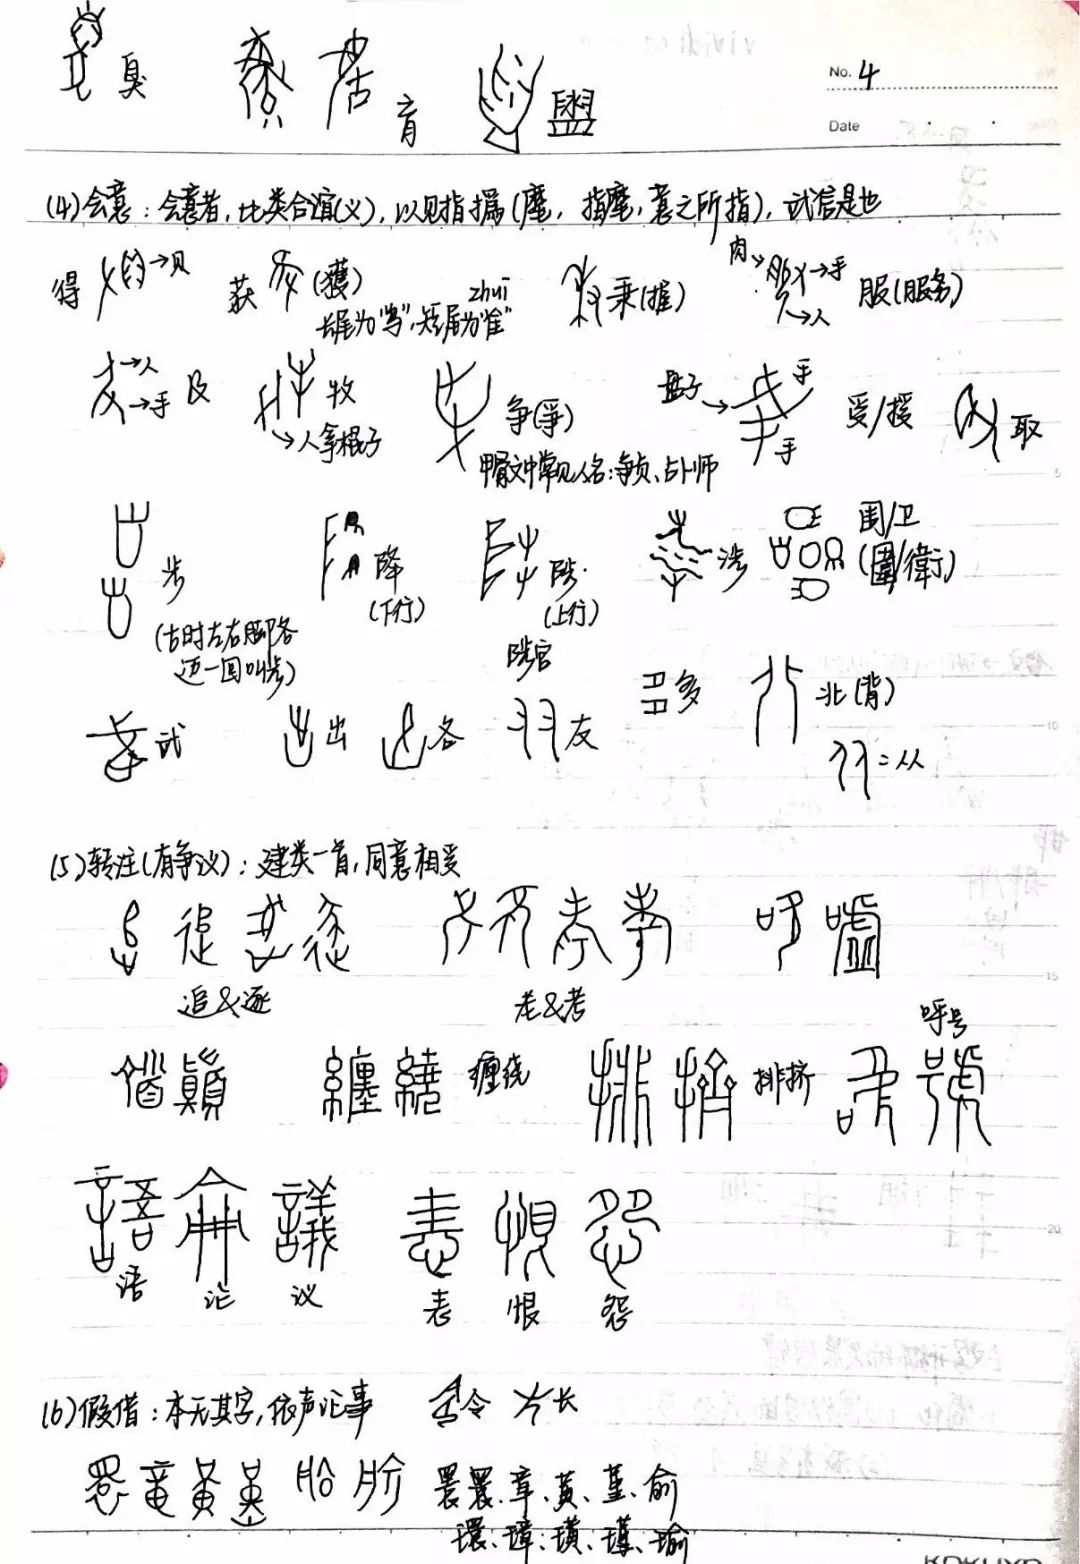 臭 育 盟
No. 4
Date
(4)会意：会意者，比类合谊(义)，以见指撝(麾，指麾，意之所指)，武信是也
得 →贝 获 (獲) 乘(摧) 肉 →手 →人 服(服务)
zhui
长尾为"鸟"，短尾为"隹"
→人 →手 及 牧 →人拿棍子 争(爭) 盘子→ 手 手 受/授 取
甲骨文中常见人名：争贞、占卜师
步 降 (下行) 陟. (上行) 涉 围/卫 (圍/衛)
(古时左右脚各
迈一回叫步)
陟官
武 出 各 友 多 北(背)
=从
(5)转注(有争议)：建类一首，同意相受
追&逐 老&考
缠绕 排挤 呼号
语 论 议 恚 恨 怨
(6)假借：本无其字，依声讬事 令 长
睘、章、黄、堇、俞
環、璋、璜、瑾、瑜
KOKUYO